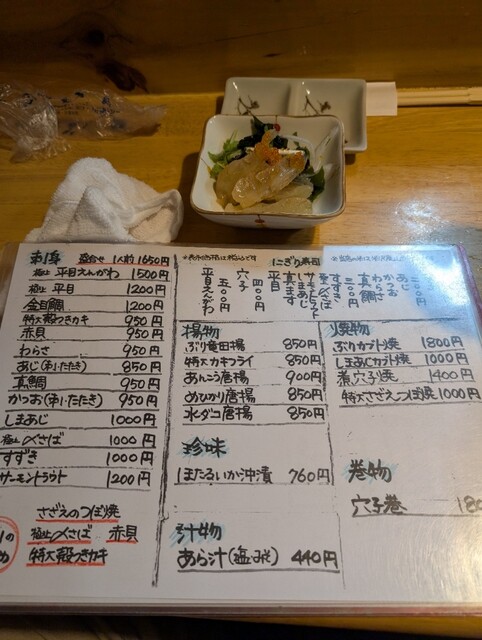 刺身 盛合せ 1人前 1650円
極上 平目えんがわ 1500円
極上 平目 1200円
金目鯛 1200円
特大殻つきカキ 950円
赤貝 950円
わらさ 950円
あじ(刺・たたき) 850円
真鯛 950円
かつお(刺・たたき) 950円
しまあじ 1000円
極上〆さば 1000円
すずき 1000円
サーモントラウト 1200円
さざえのつぼ焼
極上〆さば 赤貝
特大殻つきカキ
にぎり寿司
平目えんがわ
平目
五〇〇円
穴子
四〇〇円
真ます
しまあじ
サーモントラウト
極上〆さば
すずき
三〇〇円
真鯛
わらさ
かつお
あじ
二〇〇円
揚物
ぶり竜田揚 850円
特大カキフライ 850円
あんこう唐揚 900円
めひかり唐揚 850円
水ダコ唐揚 850円
珍味
ほたるいか沖漬 760円
汁物
あら汁(塩・みそ) 440円
焼物
ぶりカブト焼 1800円
しまあじカブト焼 1000円
煮穴子焼 1400円
特大さざえつぼ焼 1000円
巻物
穴子巻 180